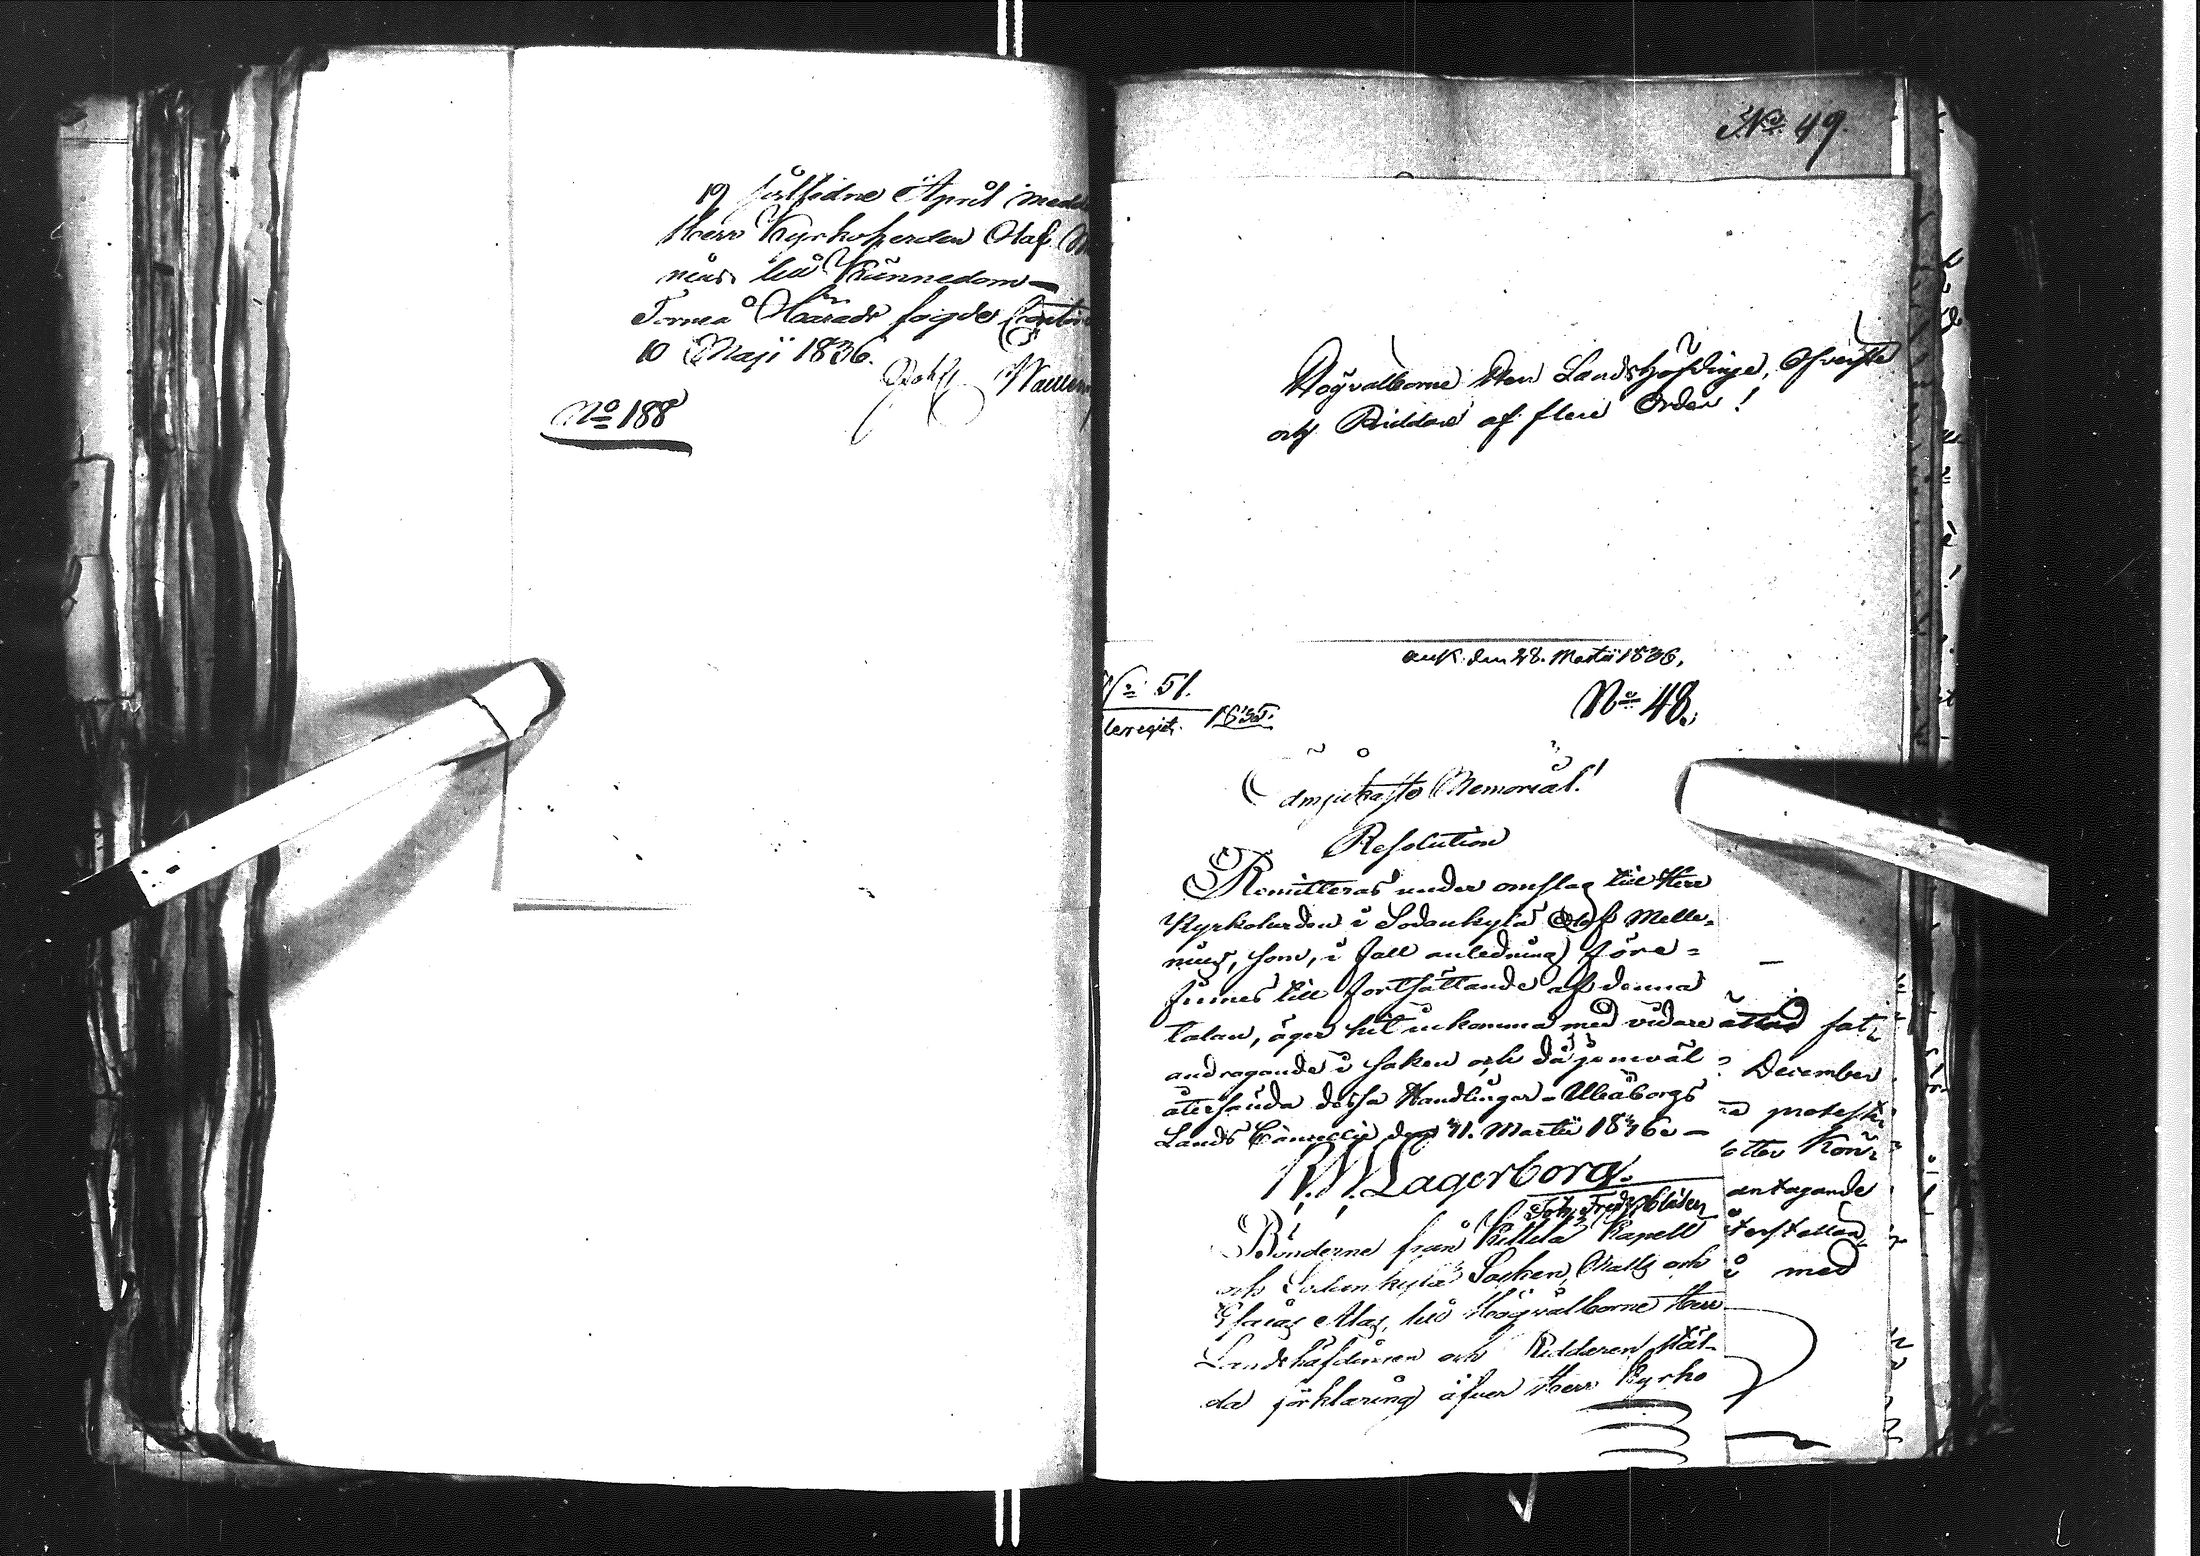 19 sistledne April medd
Herr Kyrkoherden Olaf
nius till Kännedom
Torneå Härads fögde Contoir
10 Maji 1836.
No 188
No 49.
Högvälborne Herr Landshöfdinge, Öfverste
och Riddare af flere Orden!
ank. den 28. Martii 1836.
No 51.
1635.
No 48.
Ödmjukaste Memorial!
Resolution
Remitteras under omslag till Herr
Kyrkoherden i Sodankylä Olof Melle-
nius, som, i fall anledning före-
finnes till fortsättande af denna
talan, äger hit inkomma med vidare
andragande i saken och då jemväl
återsända dessa Handlingar. Uleåborgs
Lands Cancellie den 31. Martii 1836.
R. W. Lagerborg.
Joh. Fredr.
Bönderne från Kittilä Kapell
och Sodankylä Socken, Matts och
Esaias Alag, till Högvälborne Herr
Landshöfdingen och Riddaren stäl-
da förklaring öfver Herr Kyrko
fat-
December
protest
etter
antagande
med